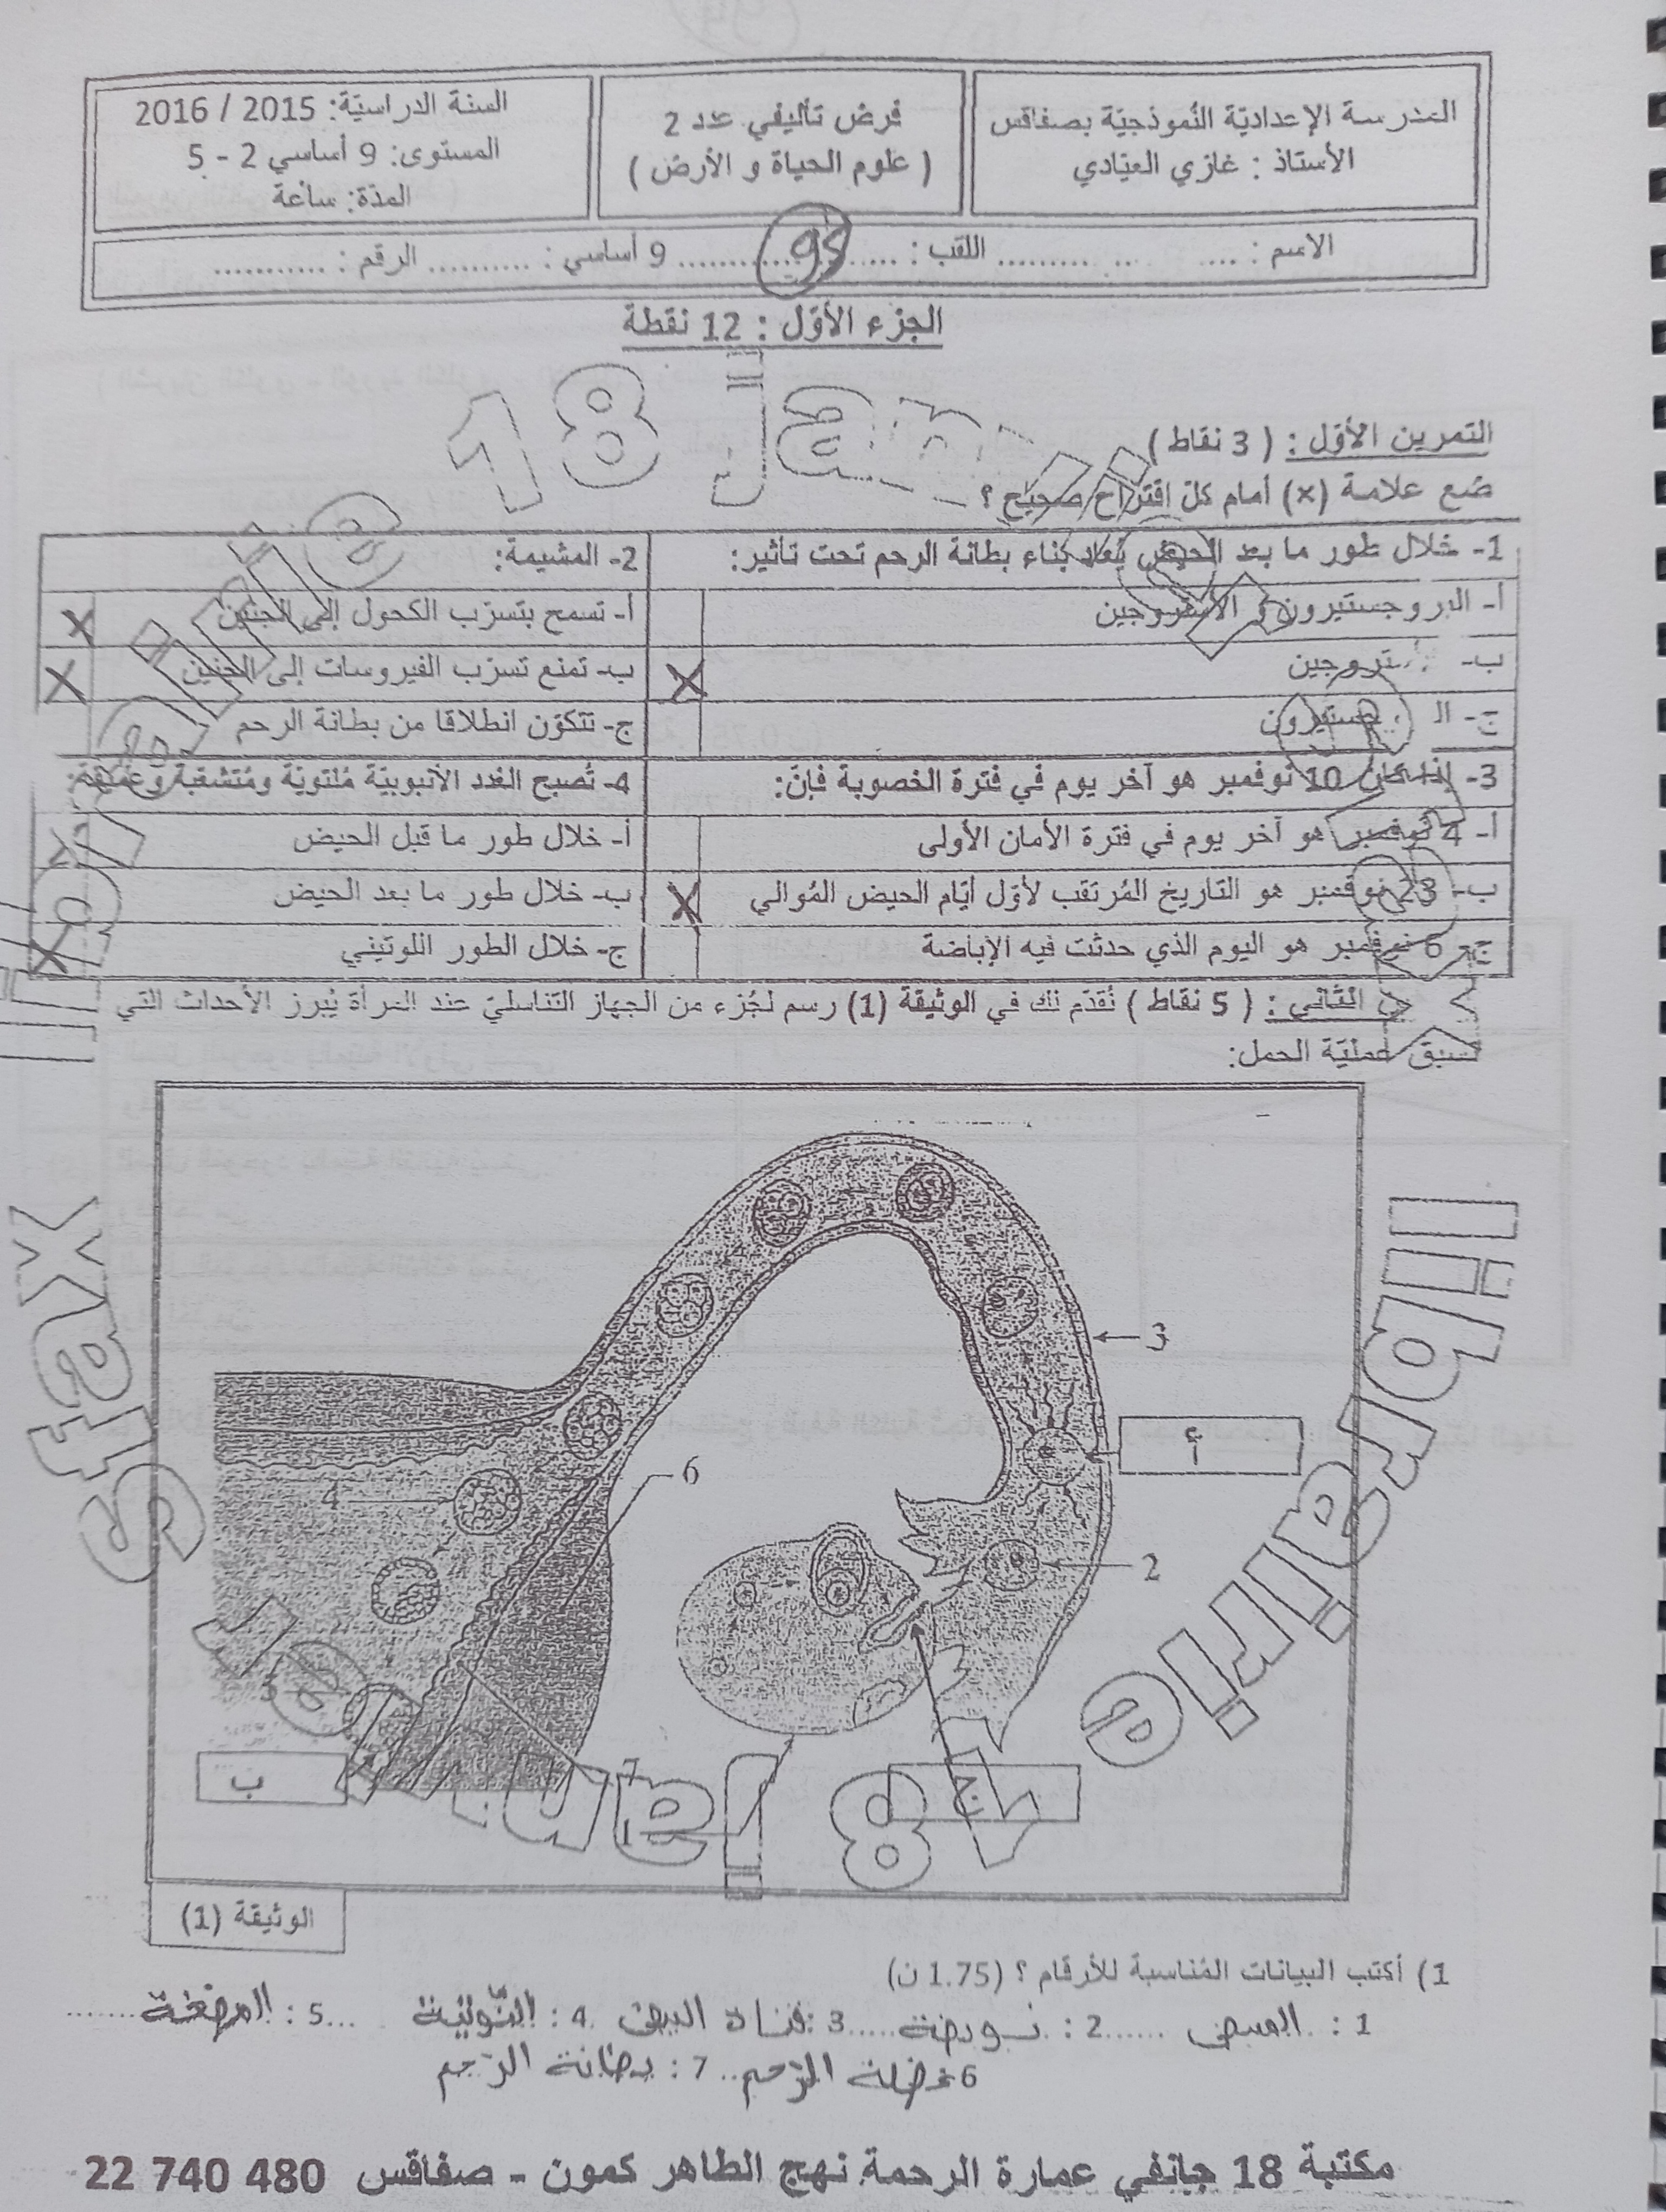 المدرسة الإعداديّة النّموذجيّة بصفاقس
الأستاذ : غازي العيّادي
فرض تأليفي عدد 2
( علوم الحياة و الأرض )
السنة الدراسيّة: 2015 / 2016
المستوى: 9 أساسي 2 - 5
المدّة: ساعة
الاسم : .... .. .......... اللقب : .................. 9 أساسي : .......... الرقم : ...........
95
الجزء الأوّل : 12 نقطة
التمرين الأوّل : ( 3 نقاط )
ضع علامة (×) أمام كلّ اقتراح صحيح ؟
1- خلال طور ما بعد الحيض يُعاد بناء بطانة الرحم تحت تأثير:
أ- البروجستيرون و الأستروجين
ب- الأستروجين X
ج- البروجستيرون
2- المشيمة:
أ- تسمح بتسرّب الكحول إلى الجنين X
ب- تمنع تسرّب الفيروسات إلى الجنين X
ج- تتكوّن انطلاقا من بطانة الرحم
3- إذا كان 10 نوفمبر هو آخر يوم في فترة الخصوبة فإنّ:
أ- 4 نوفمبر هو آخر يوم في فترة الأمان الأولى
ب- 23 نوفمبر هو التاريخ المُرتقب لأوّل أيّام الحيض المُوالي X
ج- 6 نوفمبر هو اليوم الذي حدثت فيه الإباضة
4- تُصبح الغدد الأنبوبيّة مُلتويّة ومُتشعّبة وعميقة:
أ- خلال طور ما قبل الحيض X
ب- خلال طور ما بعد الحيض
ج- خلال الطور اللوتيني X
الثّاني : ( 5 نقاط ) نُقدّم لك في الوثيقة (1) رسم لجُزء من الجهاز التّناسليّ عند المرأة يُبرز الأحداث التي
تسبق عمليّة الحمل:
3
أ
6
4
2
5
ب
7
1
ج
الوثيقة (1)
1) أكتب البيانات المُناسبة للأرقام ؟ (1.75 ن)
1 : المبيض ......2 : بويضة .....3 : قناة البيض 4 : التّوتيّة ...5 : المضغة .......
6 عضلة الرّحم..7 : بطانة الرّحم
مكتبة 18 جانفي عمارة الرحمة نهج الطاهر كمون - صفاقس 22 740 480
librairie 18 janvier sfax